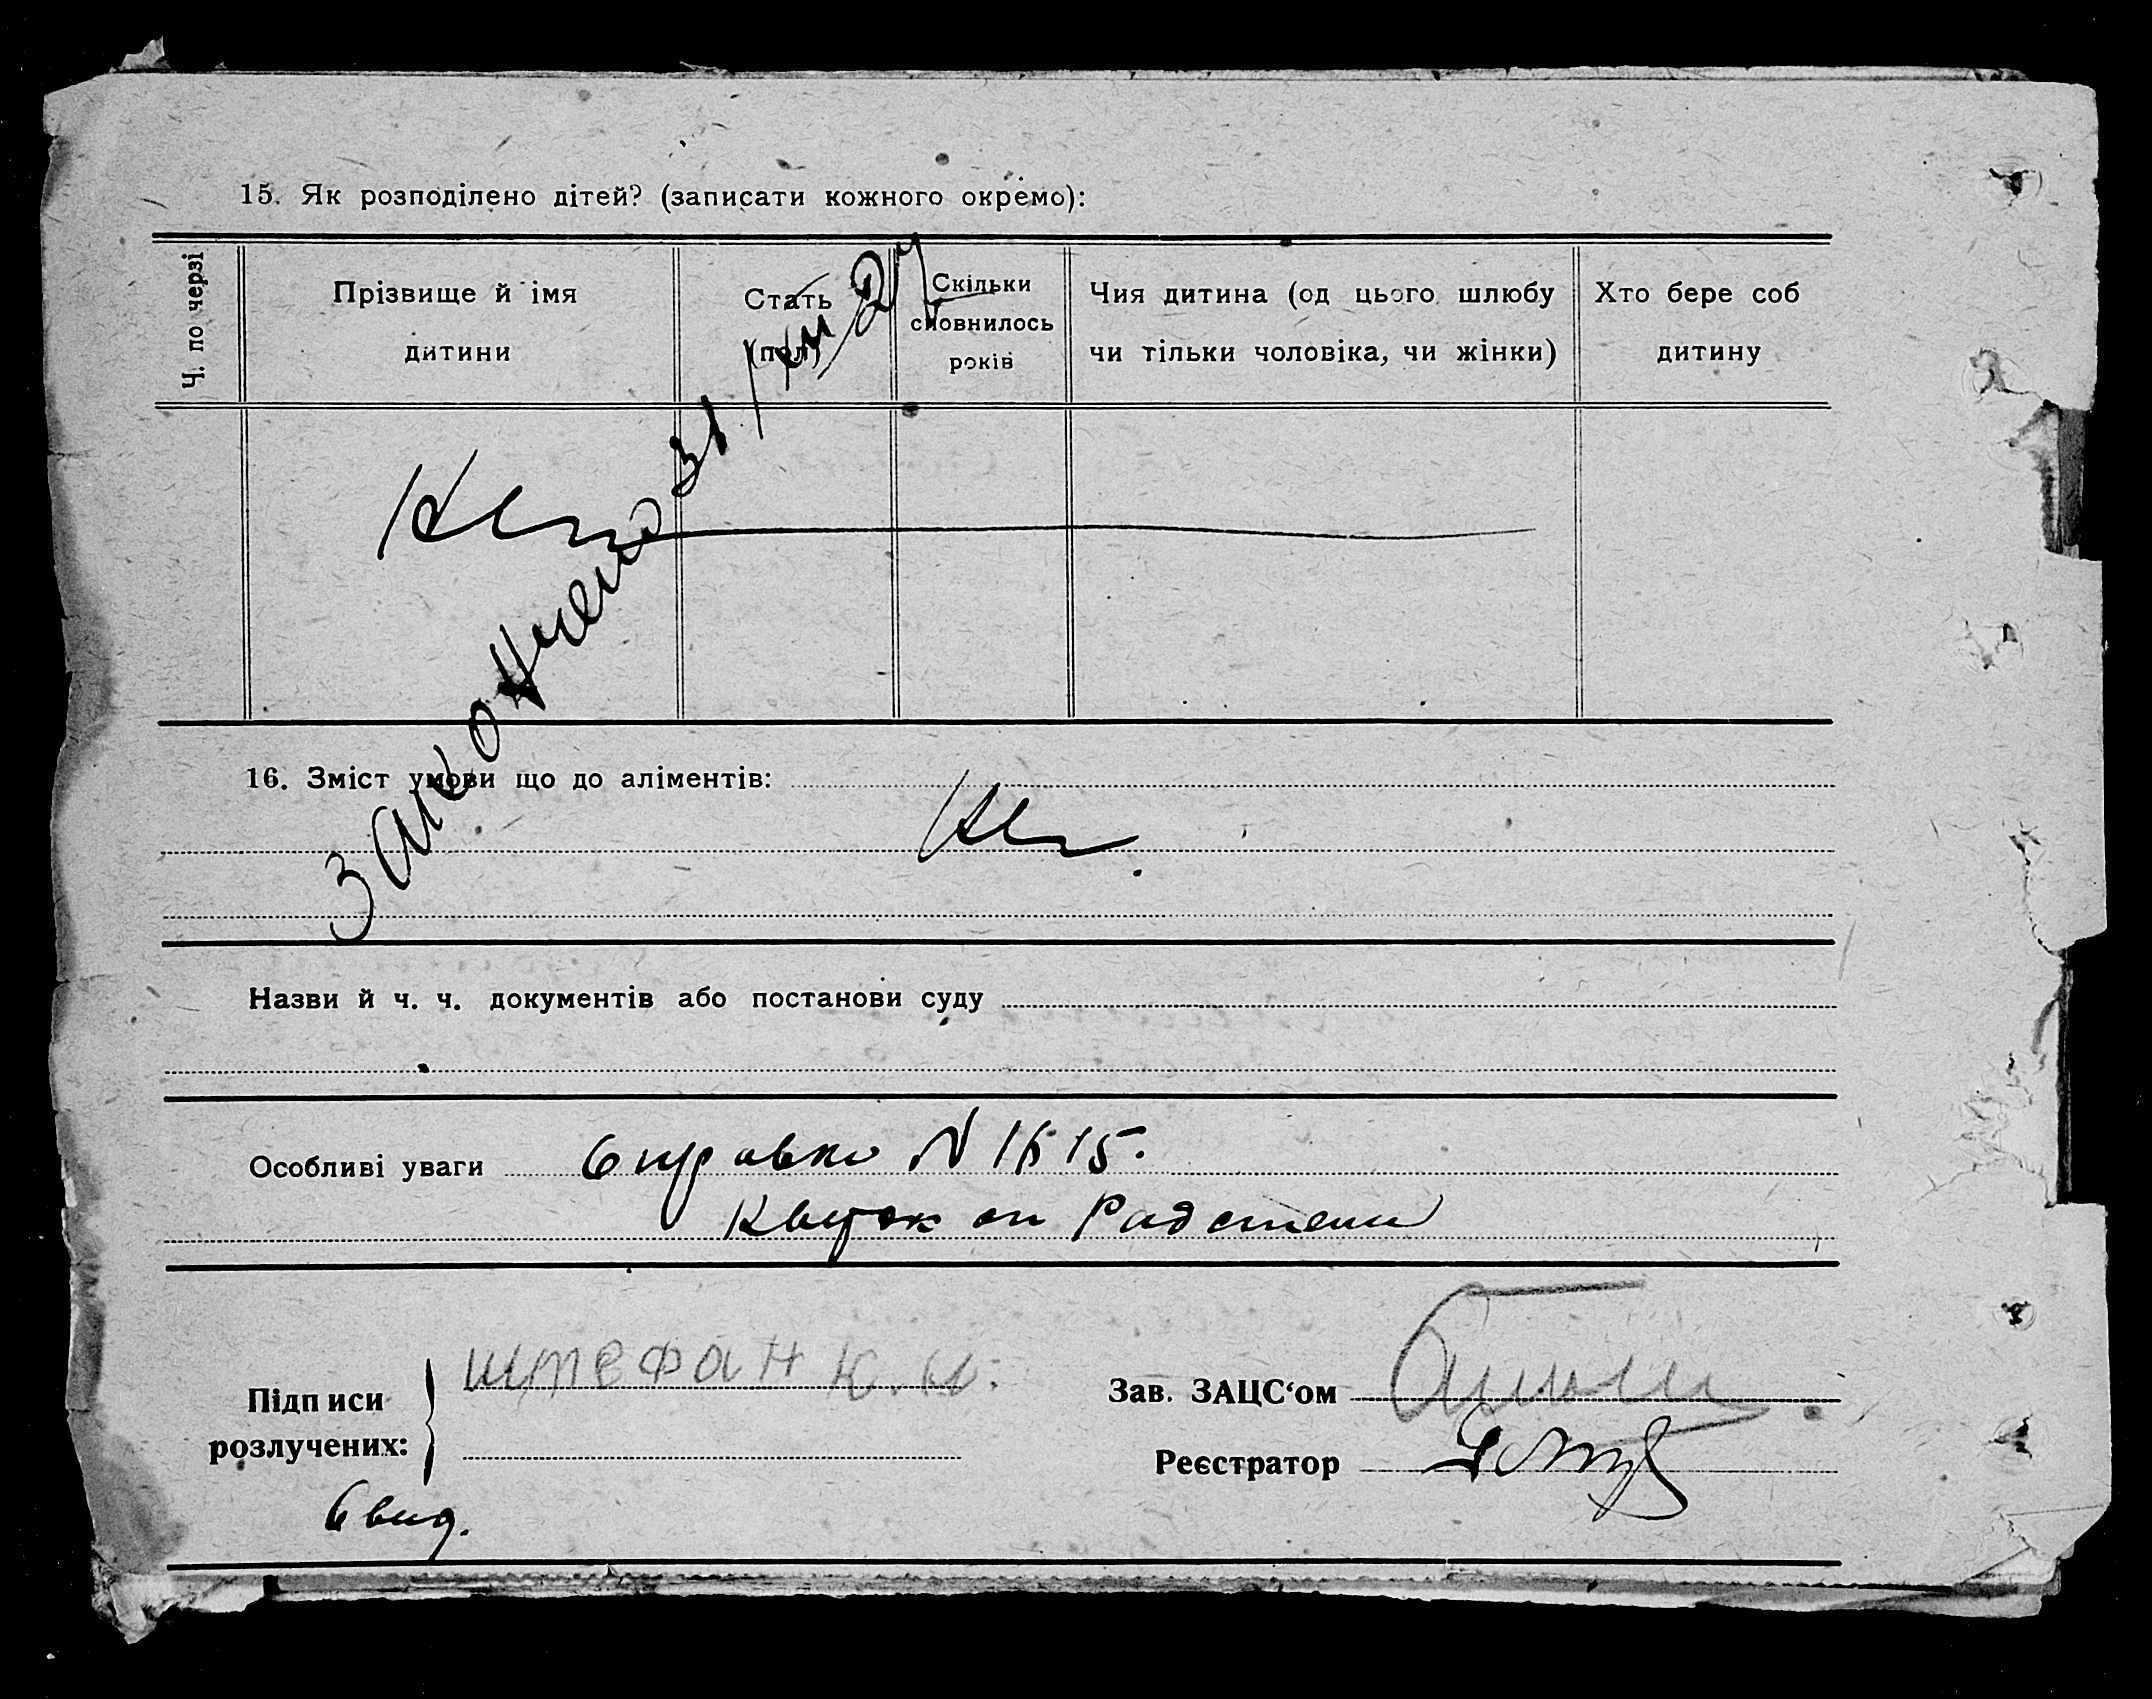 15. Як розподілено дітей? (записати кожного окремо):
Ч. по черзі
Прізвище й імя
дитини
Стать
(пол)
Скільки
сповнилось
років
Чия дитина (од цього шлюбу
чи тільки чоловіка, чи жінки)
Хто бере соб
дитину
Нет
Закончено 31/XII 24
16. Зміст умови що до аліментів:
Нет.
Назви й ч. ч. документів або постанови суду
Особливі уваги Справка N 1615.
Квиток
Підписи
розлучених:
ШТЕФАН К. И.
Зав. ЗАЦС‘ом
Реєстратор